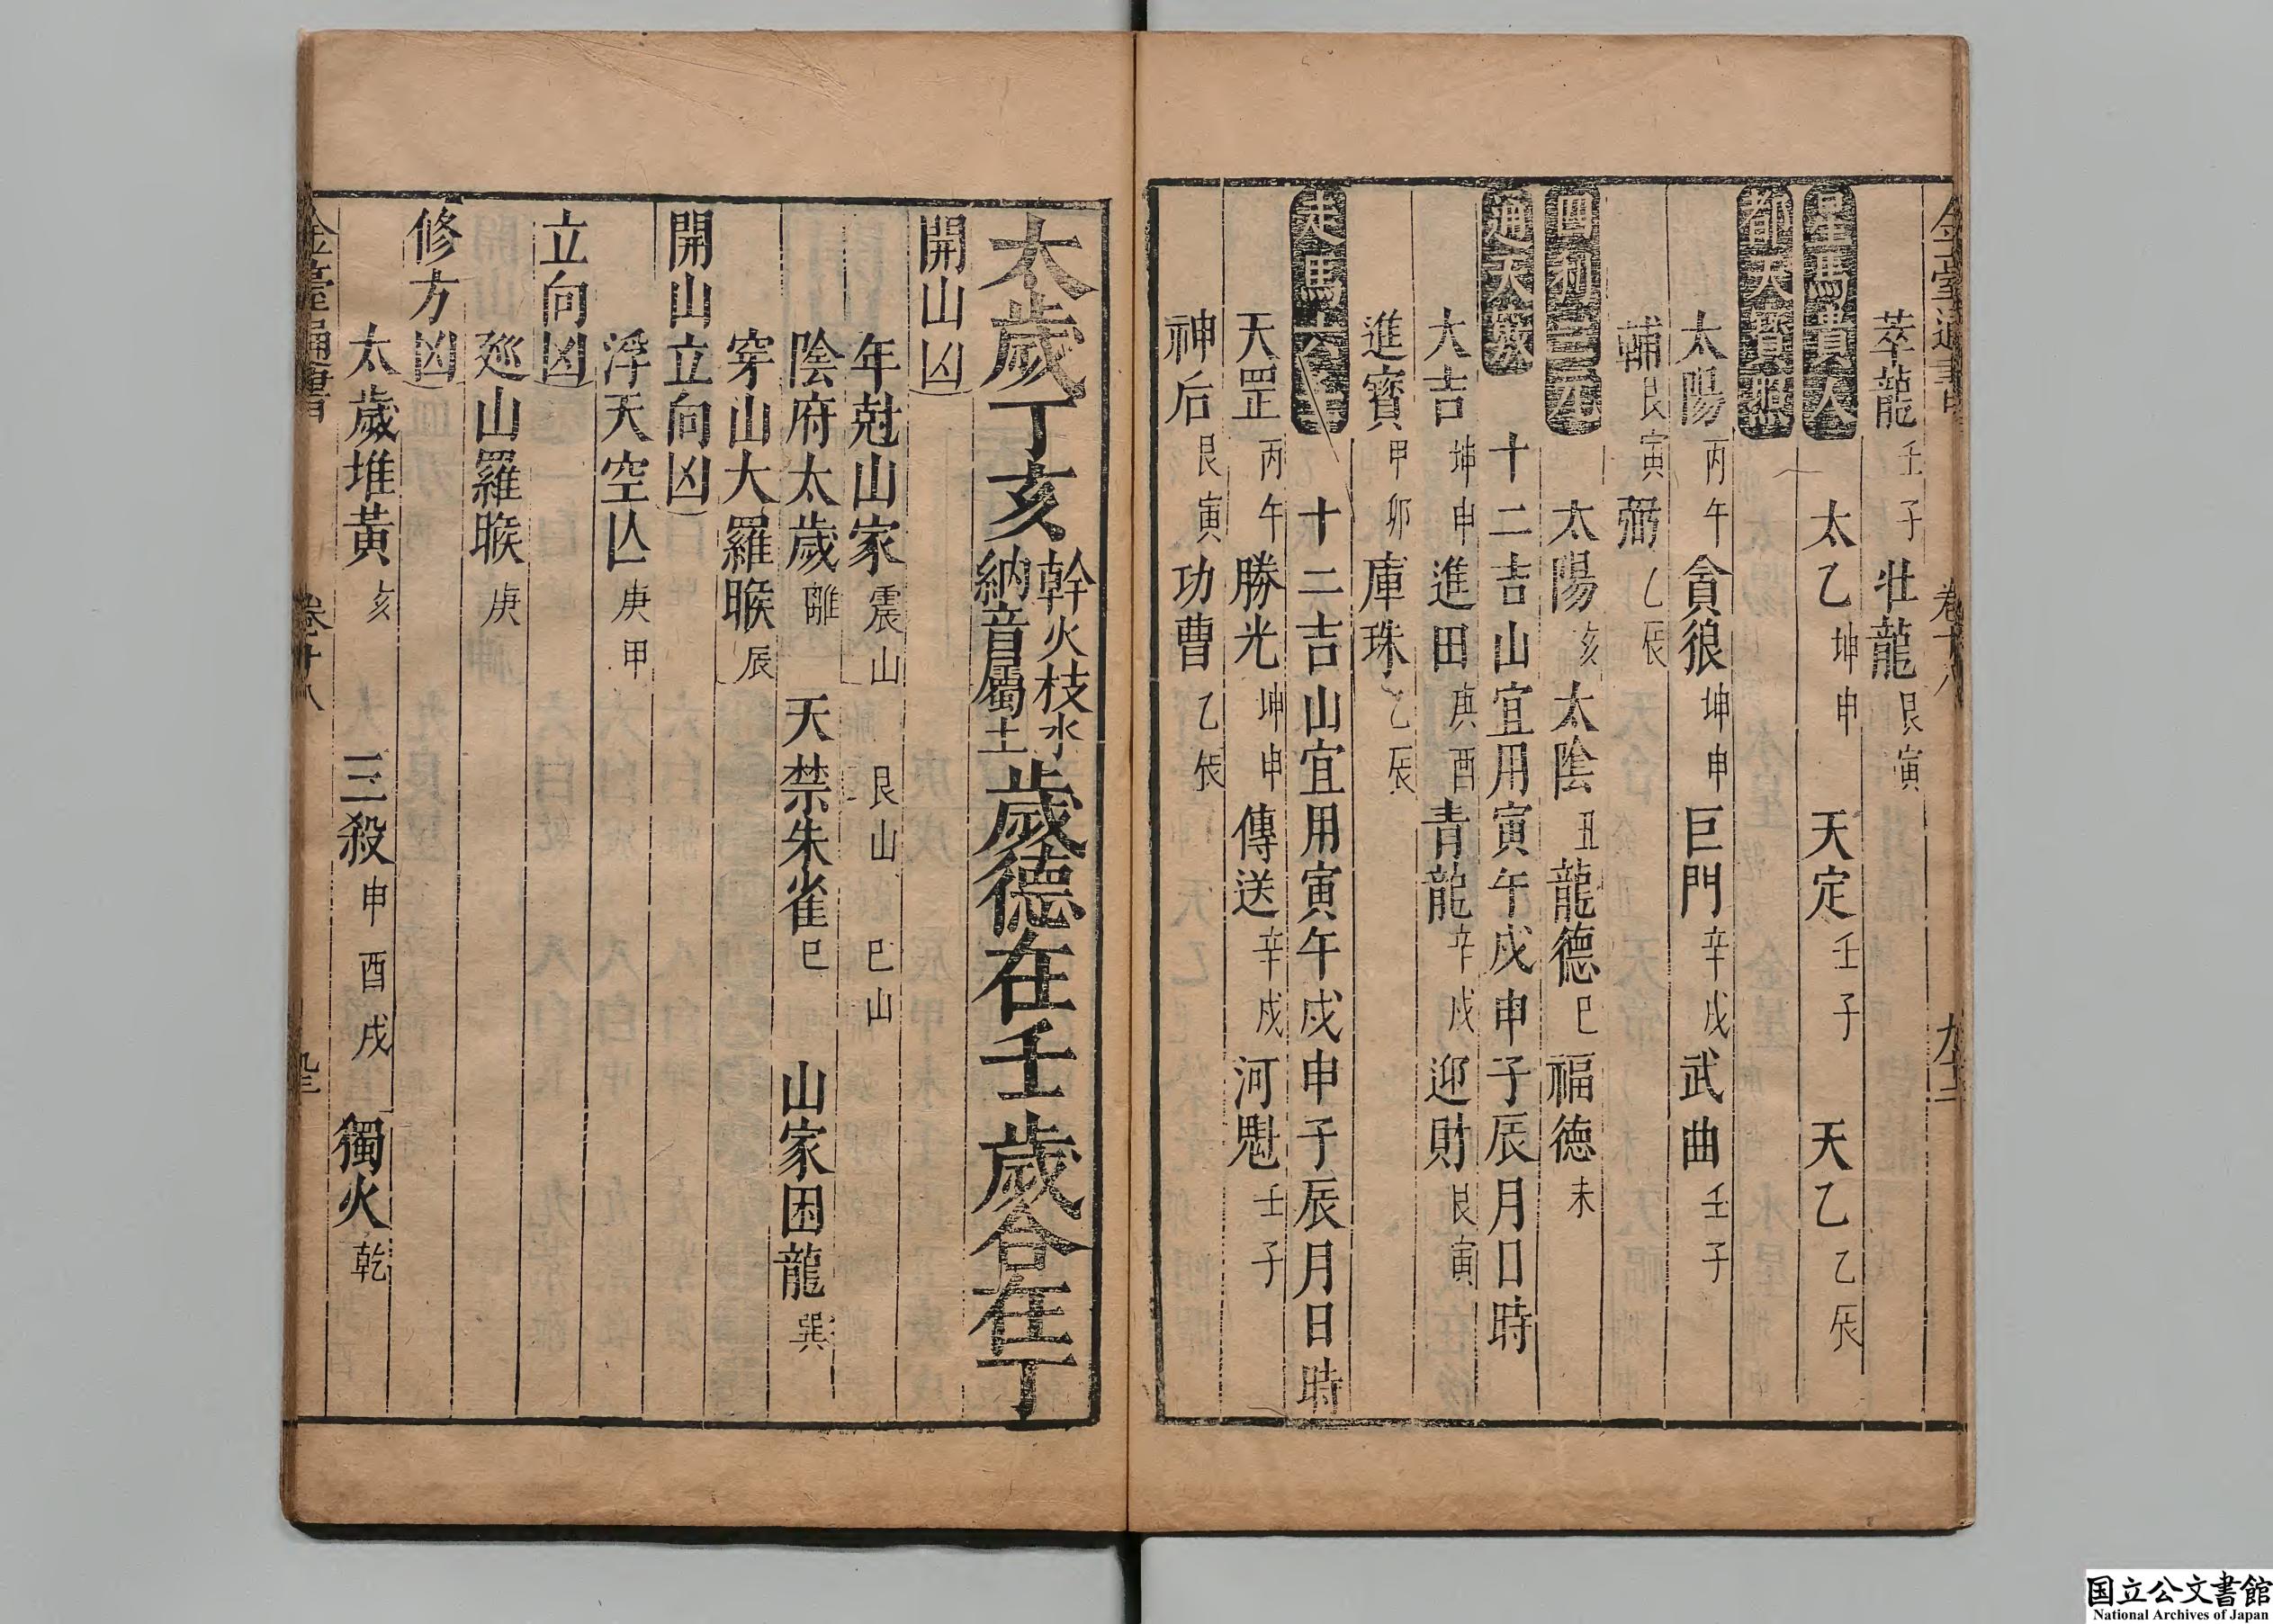 萃龍壬子壯龍艮寅
星馬貴人太乙坤申天定壬子天乙乙辰
都天寶照
太陽丙午貪狼坤申巨門辛戌武曲壬子
輔艮寅弼乙辰
四利三元太陽亥太陰丑龍德巳福德未
通天竅十二吉山宜用寅午戌申子辰月日時
大吉坤申進田庚酉青龍辛戌迎財艮寅
進寳甲卯庫珠乙辰
走馬六壬十二吉山宜用寅午戌申子辰月日時
天罡丙午勝光坤申傳送辛戌河魁壬子
神后艮寅功曹乙辰
太歲丁亥幹火枝水納音屬土歲德在壬歲合在丁
開山凶
年尅山家震山艮山巳山
陰府太歲離天禁朱雀巳山家困龍巽
穿山大羅睺辰
開山立向凶
浮天空亾庚甲
立向凶
廵山羅睺庚
修方凶
太歲堆黃亥三殺申酉戌獨火乾
金臺通書
卷十八
国立公文書館
National Archives of Japan